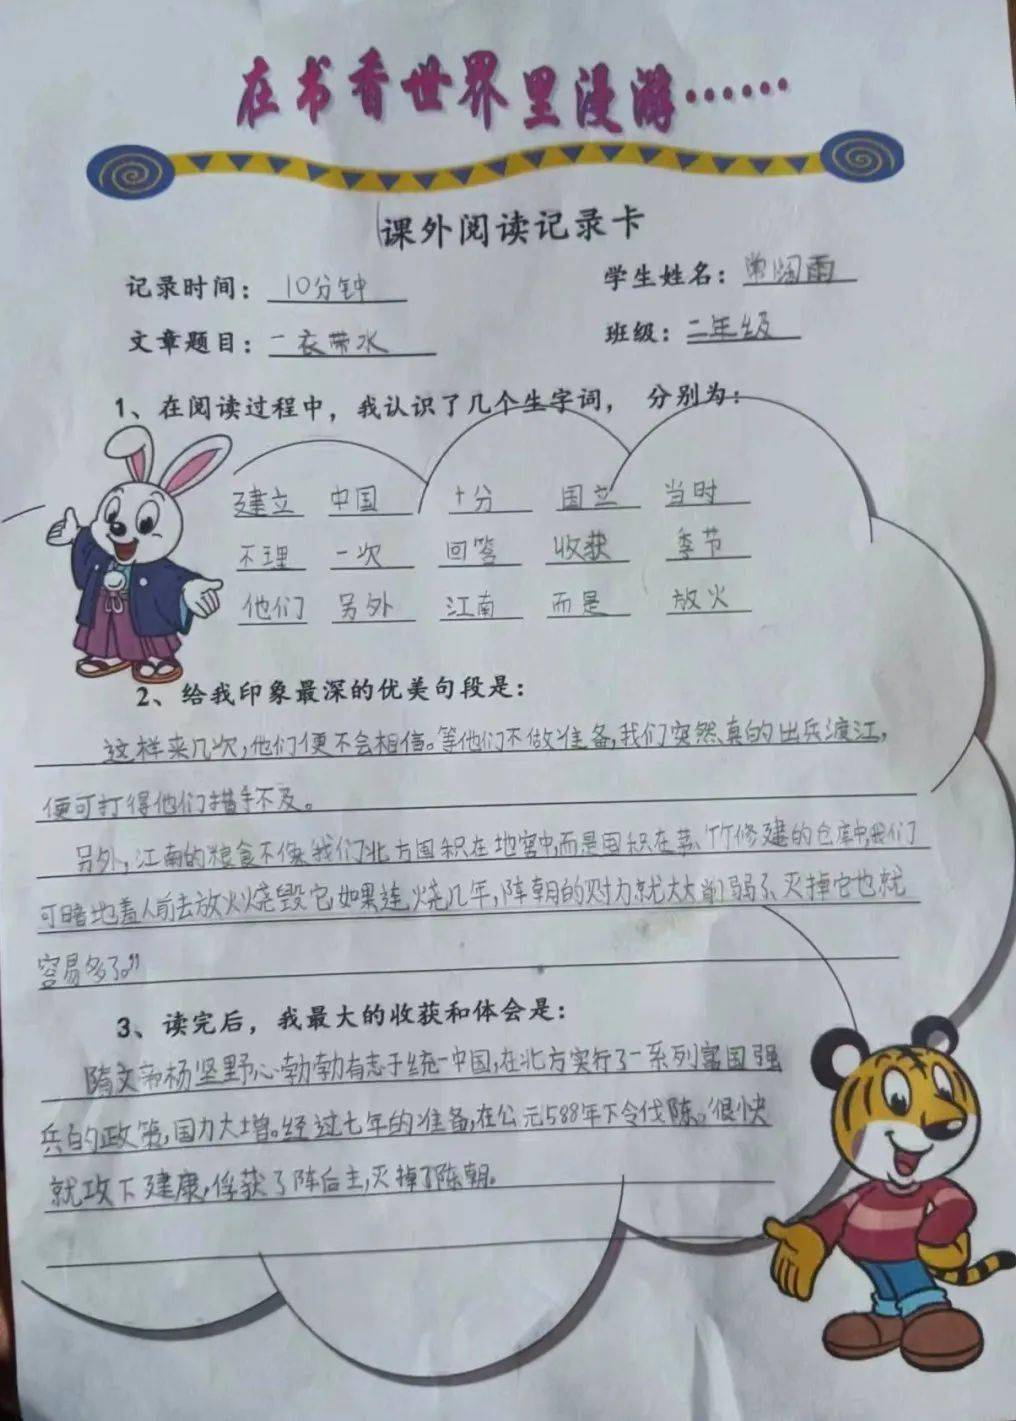 在书香世界里漫游……
课外阅读记录卡
记录时间：10分钟 学生姓名：雨
文章题目：一衣带水 班级：二年级
1、在阅读过程中，我认识了几个生字词， 分别为：
建立 中国 十分 国立 当时
不理 一次 回答 收获 季节
他们 另外 江南 而是 放火
2、给我印象最深的优美句段是：
这样来几次，他们便不会相信。等他们不做准备，我们突然真的出兵渡江，
便可打得他们措手不及。
另外，江南的粮食不像我们北方囤积在地窖中，而是囤积在茅、竹修建的仓库中，我们
可暗地差人前去放火烧毁它，如果连烧几年，陈朝的财力就大大削弱了、灭掉它也就
容易多了。”
3、读完后，我最大的收获和体会是：
隋文帝杨坚野心勃勃有志于统一中国，在北方实行了一系列富国强
兵的政策，国力大增。经过七年的准备，在公元588年下令伐陈。很快
就攻下建康，俘获了陈后主，灭掉了陈朝。